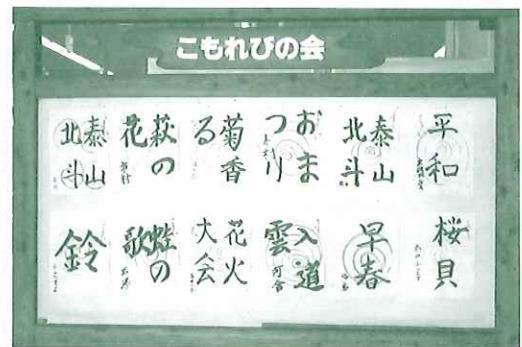 こもれびの会
平和
泰山
北斗
おま
つり
菊香
る
萩の
花
泰山
北斗
桜貝
早春
入道
雲
花火
大会
蛙の
歌
鈴